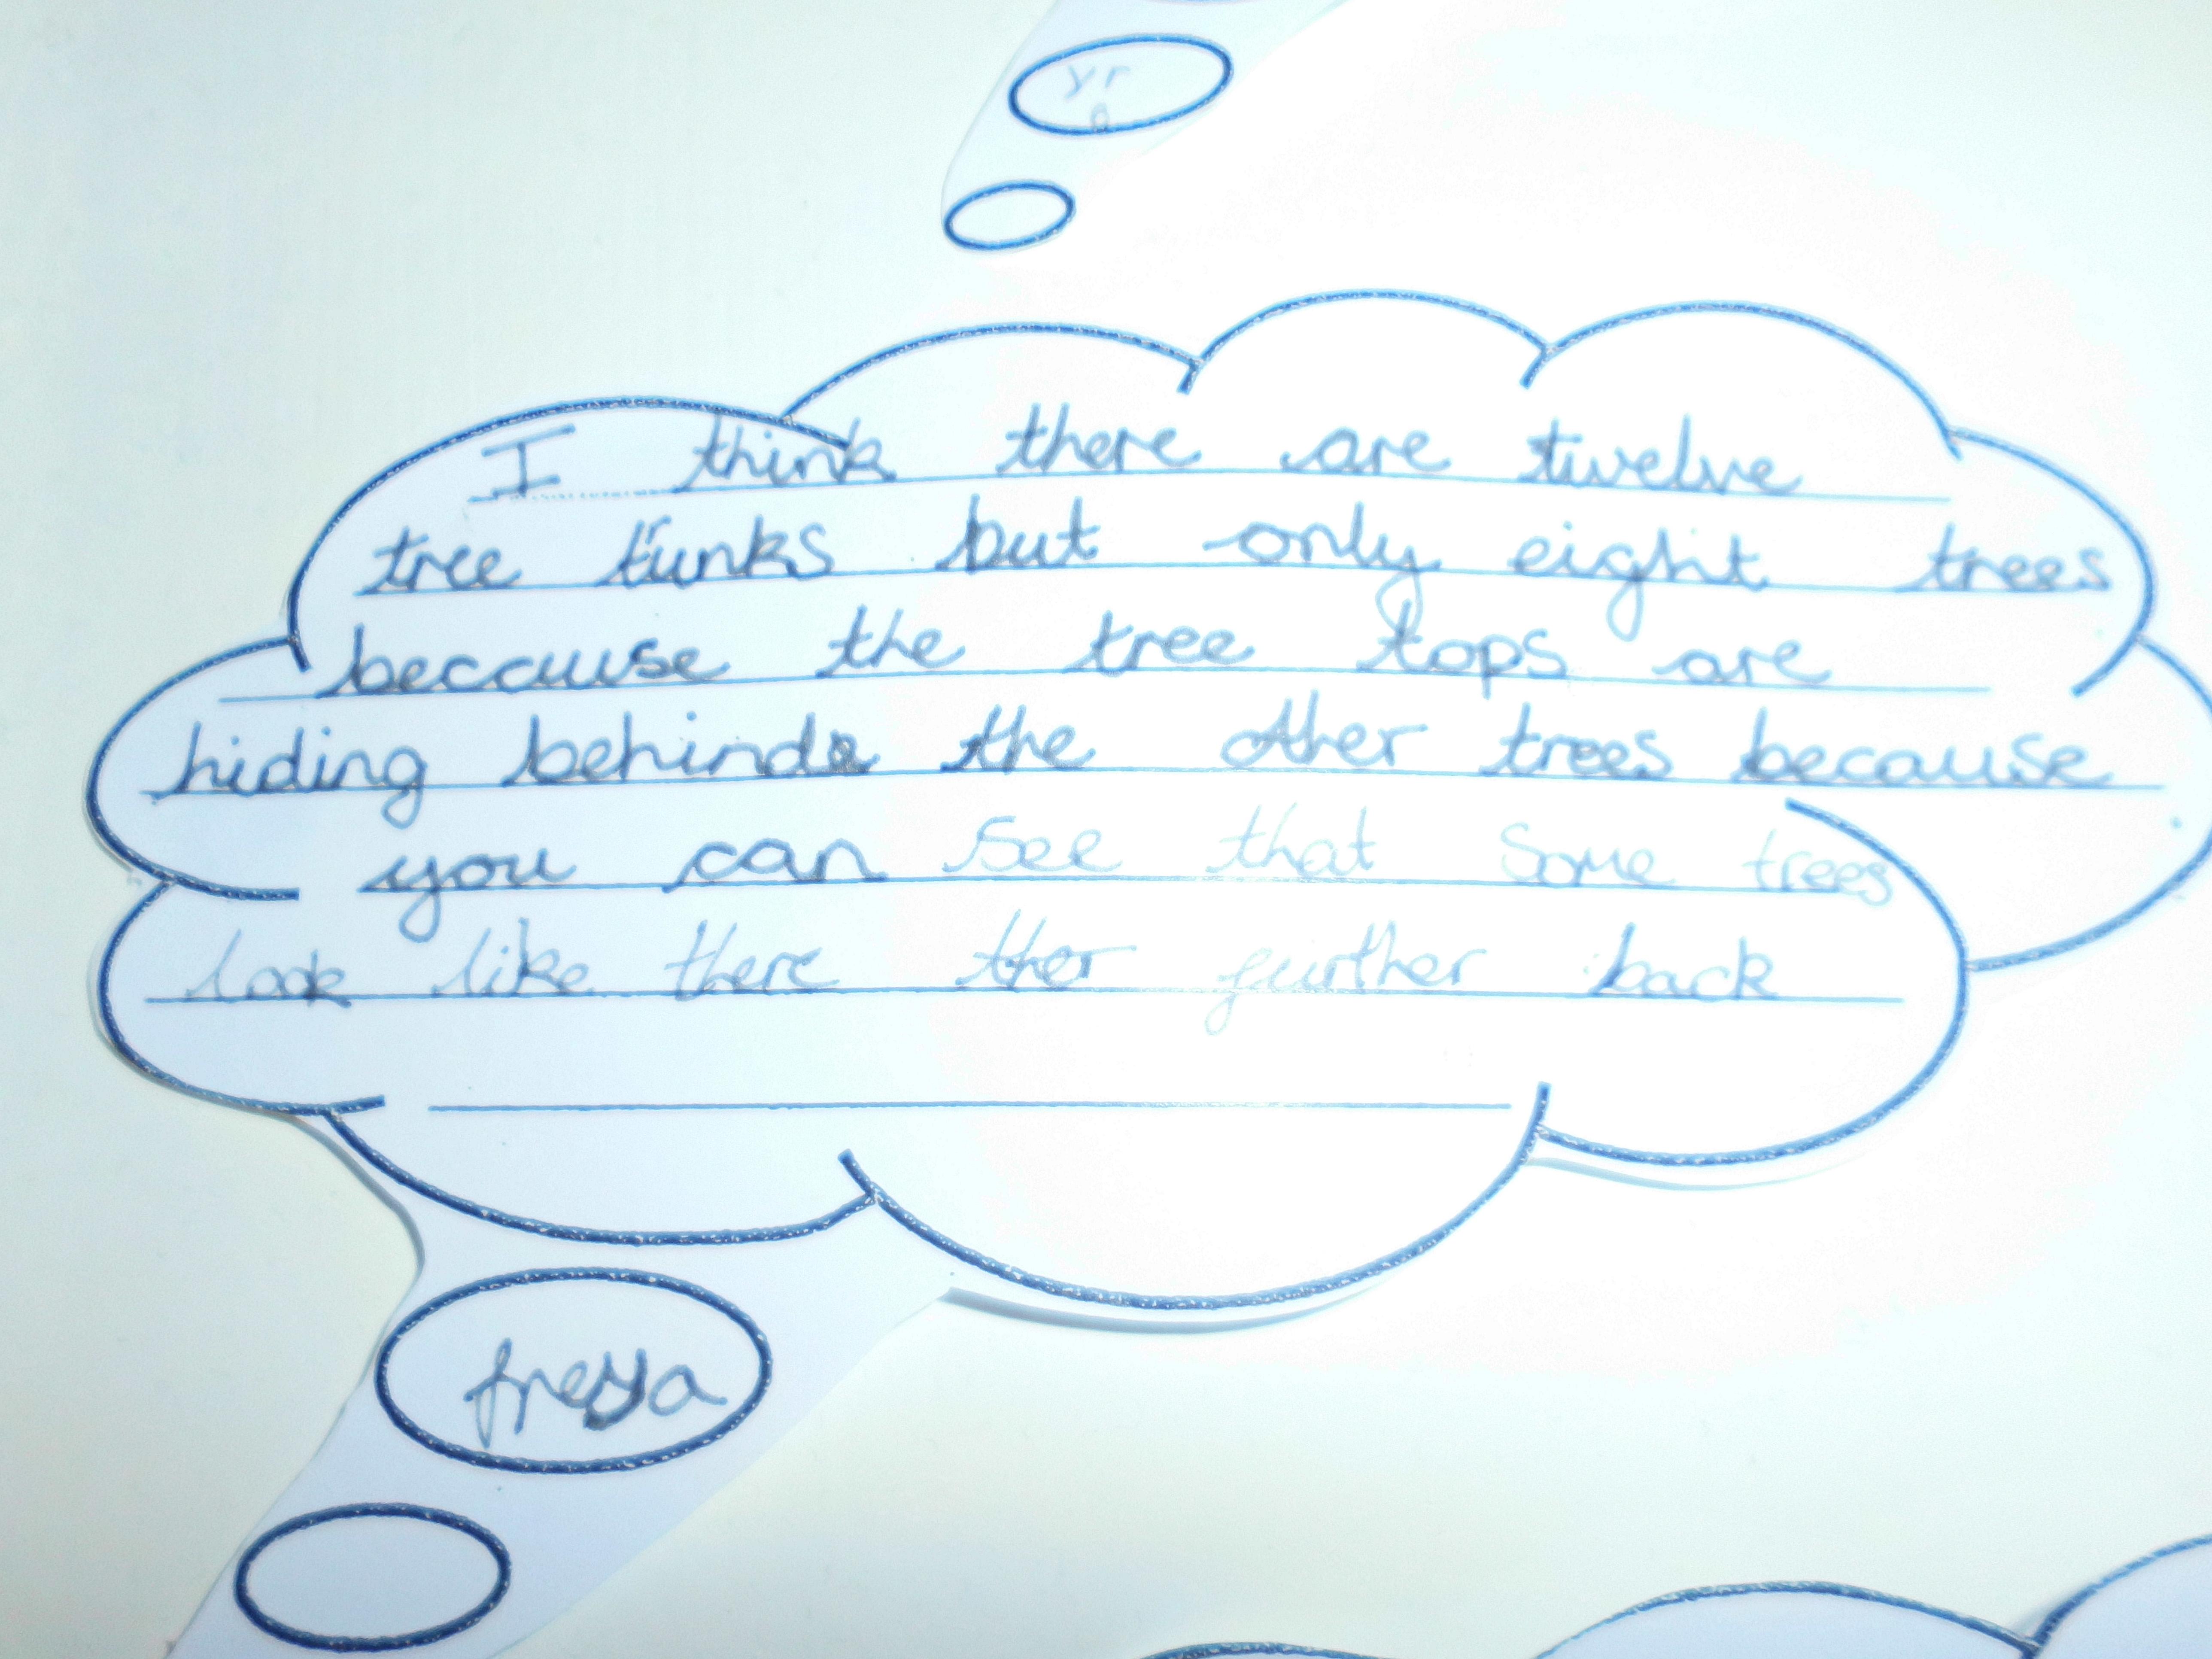 yr
I think there are twelve
tree trunks but only eight trees
because the tree tops are
hiding behind the other trees because
you can see that some trees
look like there ther further back
freya